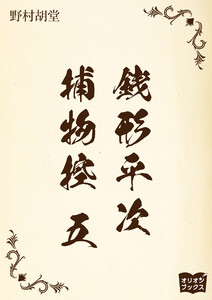 野村胡堂
銭形平次
捕物控 五
オリオン
ブックス